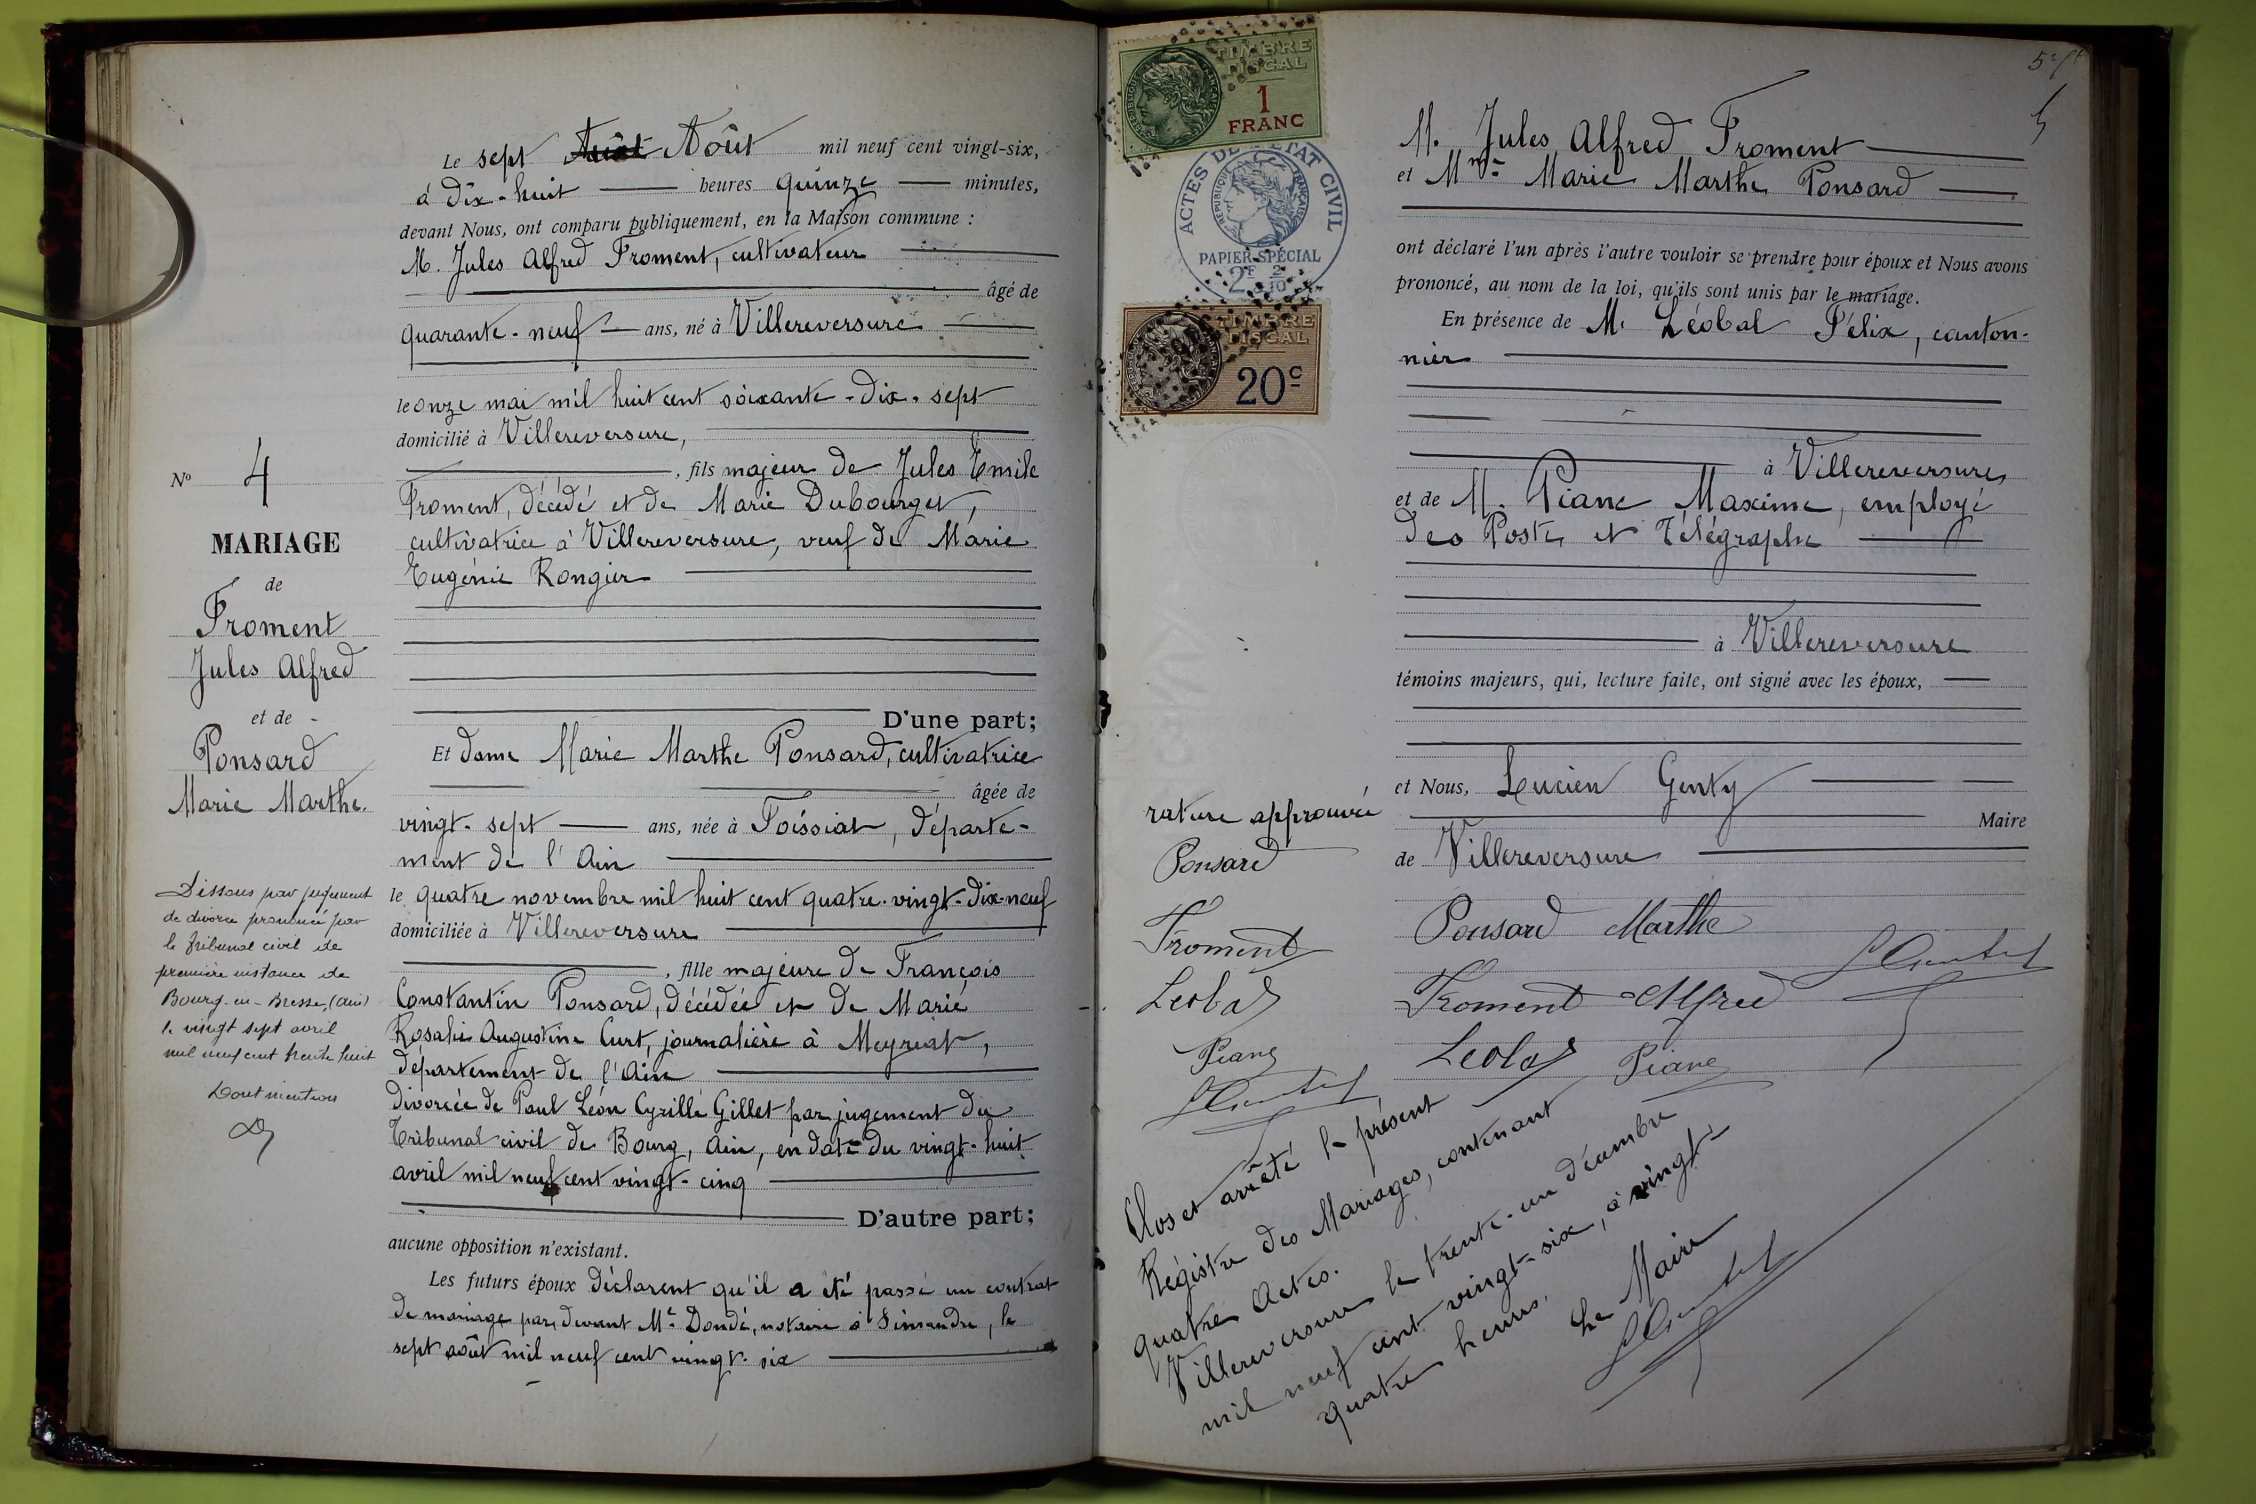 Le sept Août mil neuf cent vingt-six,
à dix-huit heures quinze minutes,
devant Nous, ont comparu publiquement, en la Maison commune :
M. Jules Alfred Froment, cultivateur
âgé de
quarante-neuf ans, né à Villereversure
le onze mai mil huit cent soixante-dix-sept
domicilié à Villereversure,
, fils majeur de Jules Emile
Froment, décédé et de Marie Dubourget,
cultivatrice à Villereversure, veuf de Marie
Eugénie Rongier
D'une part;
Et dame Marie Marthe Ponsard, cultivatrice
âgée de
vingt-sept ans, née à Foissiat, départe-
ment de l'Ain
le quatre novembre mil huit cent quatre-vingt-dix-neuf
domiciliée à Villereversure
, fille majeure de François
Constantin Ponsard, décédée et de Marie
Rosalie Augustine Curt, journalière à Meyriat,
département de l'Ain
divorcée de Paul Léon Cyrille Gillet par jugement du
Tribunal civil de Bourg, Ain, en date du vingt-huit
avril mil neuf cent vingt-cinq
D'autre part;
aucune opposition n'existant.
Les futurs époux déclarent qu'il a été passé un contrat
de mariage par devant Me Dondé, notaire à Simandre, le
sept août mil neuf cent vingt-six
No 4
MARIAGE
de
Froment
Jules Alfred
et de
Ponsard
Marie Marthe.
Dissous par jugement
de divorce prononcé par
le tribunal civil de
première instance de
Bourg-en-Bresse, (Ain)
le vingt sept avril
mil neuf cent trente huit
Dont mention
TIMBRE
FISCAL
1
FRANC
ACTES DE L'ETAT CIVIL
REPUBLIQUE FRANÇAISE
PAPIER SPÉCIAL
2F 2/10
TIMBRE
FISCAL
20c
5
M. Jules Alfred Froment
et Mme Marie Marthe Ponsard
ont déclaré l'un après l'autre vouloir se prendre pour époux et Nous avons
prononcé, au nom de la loi, qu'ils sont unis par le mariage.
En présence de M. Léobal Félix, canton-
nier
à Villereversure
et de M. Piane Maxime, employé
des Postes et Télégraphe
à Villereversure
témoins majeurs, qui, lecture faite, ont signé avec les époux,
et Nous, Lucien Genty
Maire
de Villereversure
Ponsard Marthe
Froment Alfred
Leobal Piane
rature approuvée
Ponsard
Froment
Leobal
Piane
Clos et arrêté le présent
Régistre des Mariages, contenant
quatre Actes.
Villereversure le trente-un décembre
mil neuf cent vingt-six, à vingt-
quatre heures.
Le Maire